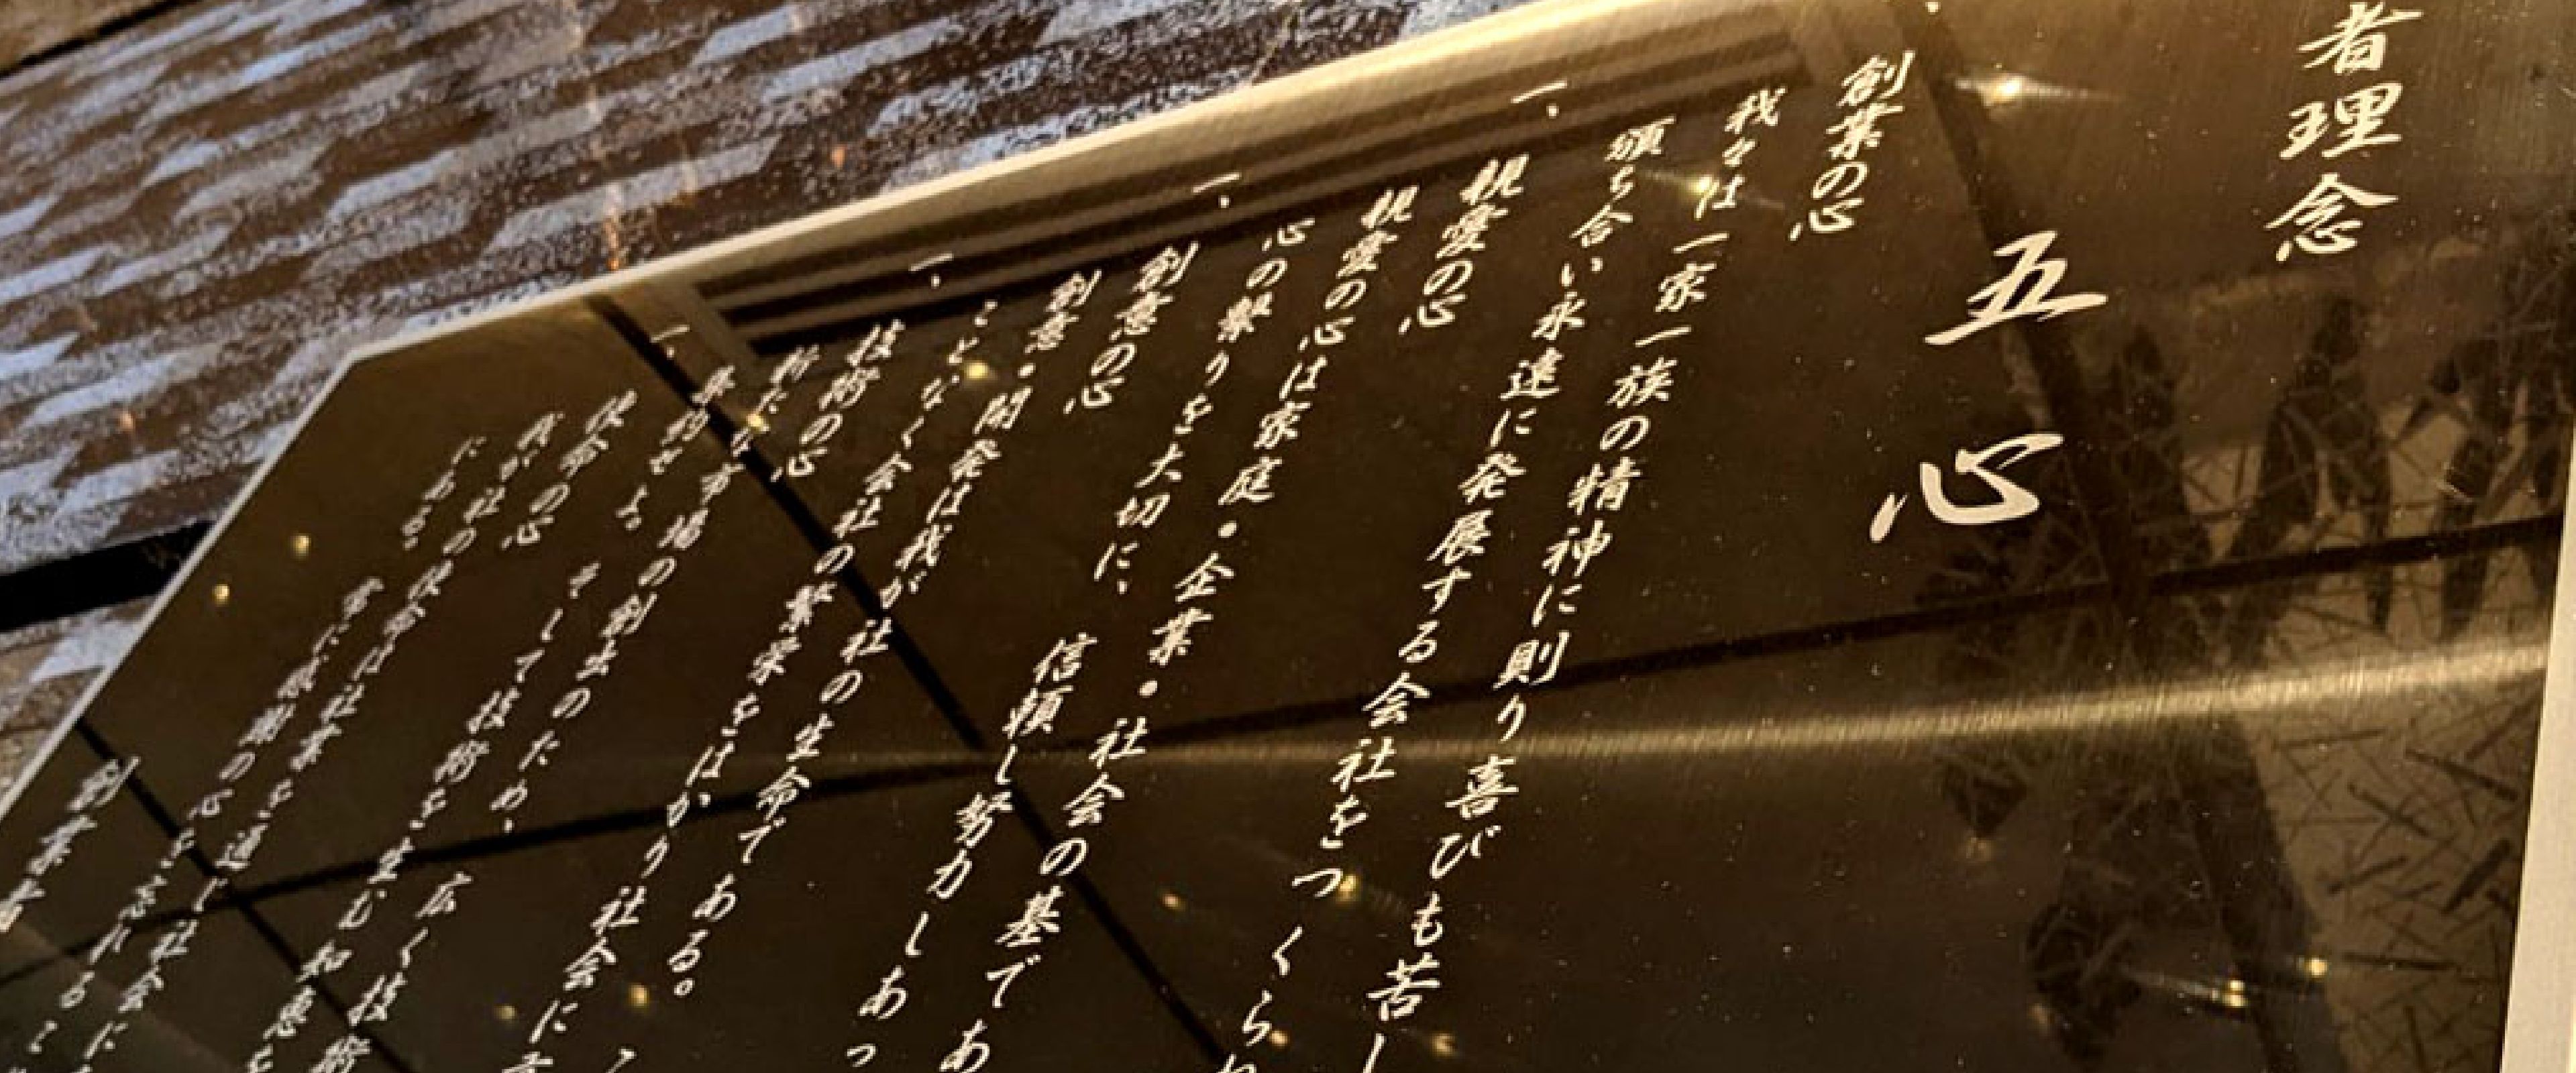 者理念
五心
創業の心
我々は一家一族の精神に則り喜びも苦し
頒ち合い永遠に発展する会社をつくらね
一、
親愛の心
親愛の心は家庭・企業・社会の基であ
心の繋りを大切に、信頼し努力しあっ
一、
創意の心
創意・開発は我が社の生命である。
ことなく会社の繁栄をはかり社会に
一、
技術の心
新たな市場の創出のため、広く技術
そして技術を生む知恵を
一、
使命の心
我が社の使命は社業を通じ社会に
にある。常に感謝の心を忘れる
創業者